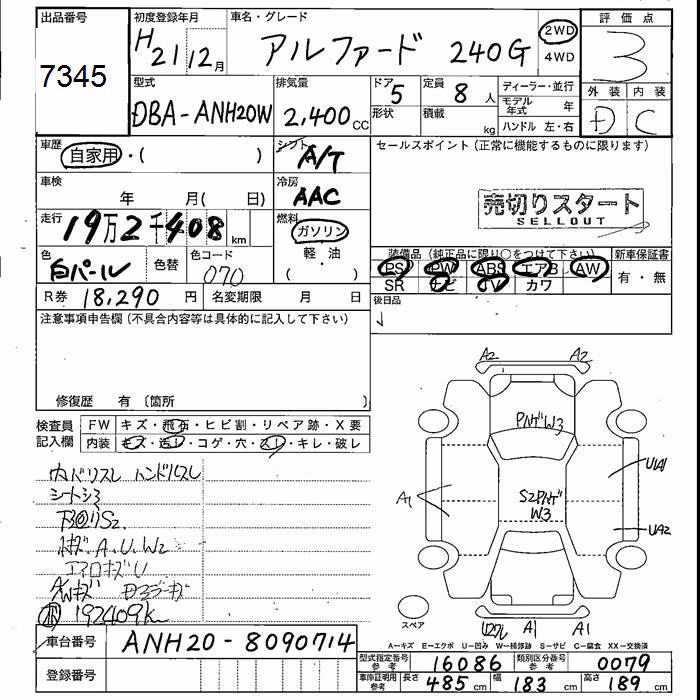 出品番号
7345
初度登録年月
H21 12月
車名・グレード
アルファード 240G
2WD
4WD
評価点
3
型式
DBA-ANH20W
排気量
2,400cc
ドア
5
形状
定員
8人
積載
kg
ディーラー・並行
モデル年式 年
ハンドル 左・右
外装 内装
D C
車歴
自家用・( )
シフト
A/T
セールスポイント(正常に機能するものに限ります)
車検
年 月( 日)
冷房
AAC
売切りスタート
SELLOUT
走行
19万2千408km
燃料
ガソリン
軽・油
( )
色
白パール
色替
色コード
070
装備品(純正品に限り○をつけて下さい)
新車保証書
PS PW ABS エアB AW
SR ナビ TV カワ
有・無
R券 18,290円
名変期限 月 日
後日品
注意事項申告欄(不具合内容等は具体的に記入して下さい)
修復歴 有〔箇所 〕
検査員記入欄
FW キズ・飛石・ヒビ割・リペア跡・X要
内装 キズ・汚レ・コゲ・穴・スレ・キレ・破レ
内バリスレ ハンドルスレ
シートシミ
下回りS2
A.U.W2
エアロキズU
A/Wキズ
192409k
A2 A2
W3
A1
UA1
S2
W3
UA2
スペア
A1 A1
A-キズ E-エクボ U-凹み W-補修跡 S-サビ C-腐食 XX-交換済
車台番号 ANH20-8090714
登録番号
型式指定番号 参考 16086
類別区分番号 参考 0079
車庫証明用 参考 長さ 485cm 幅 183cm 高さ 189cm